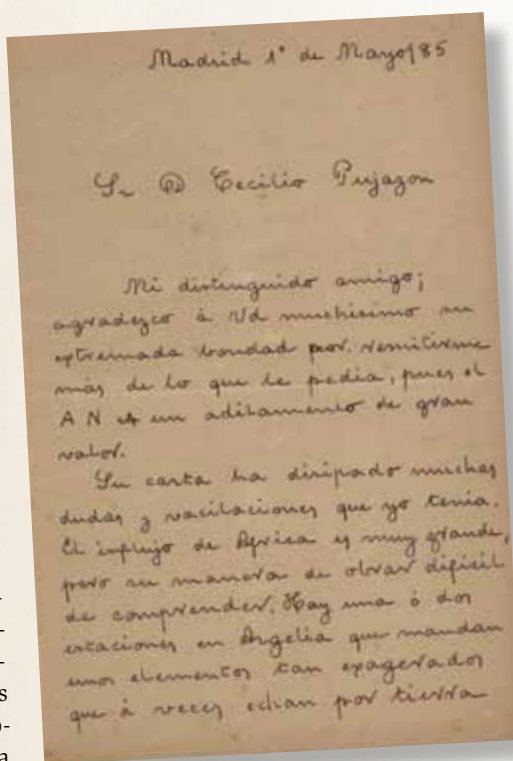 Madrid 1º de Mayo/85
Sr D Cecilio Pujazon
Mi distinguido amigo;
agradezco á Vd muchisimo su
extremada bondad por remitirme
más de lo que le pedia, pues el
A N es un aditamento de gran
valor.
Su carta ha disipado muchas
dudas y vacilaciones que yo tenia.
El influjo de Africa es muy grande,
pero su manera de obrar dificil
de comprender. Hay una ó dos
estaciones en Argelia que mandan
unos elementos tan exagerados
que á veces echan por tierra
-
-
-
s
-
a